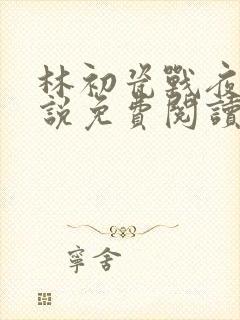 林初瓷戰夜
說免費閱讀
寧舍